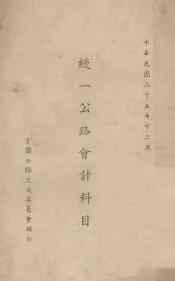 中華民國二十五年十二月
統一公路會計科目
全國公路交通委員會編印